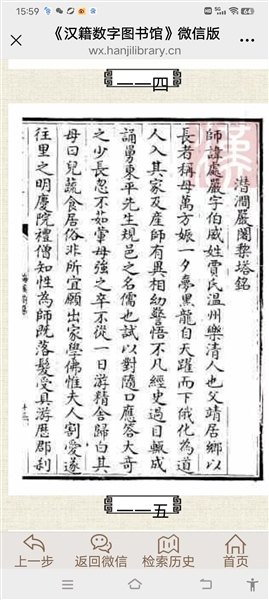 15:59
64
《汉籍数字图书馆》微信版
wx.hanjilibrary.cn
一一四
潛澗嚴闍黎塔銘
師諱處嚴字伯威姓賈氏溫州樂清人也父靖居鄉以
長者稱母萬方娠一夕夢黑龍自天躍而下俄化為道
人入其家及產師有異相幼警悟不凡經史過目輒成
誦舅東平先生規邑之名儒也試以對隨口應答大奇
之少長忽不茹葷母強之卒不從一日游精舍歸白其
母曰兒蔬食居俗非所宜願出家學佛惟夫人割愛遂
往里之明慶院禮僧知性為師既落髮受具游歷郡剎
一一五
上一步
返回微信
检索历史
首页